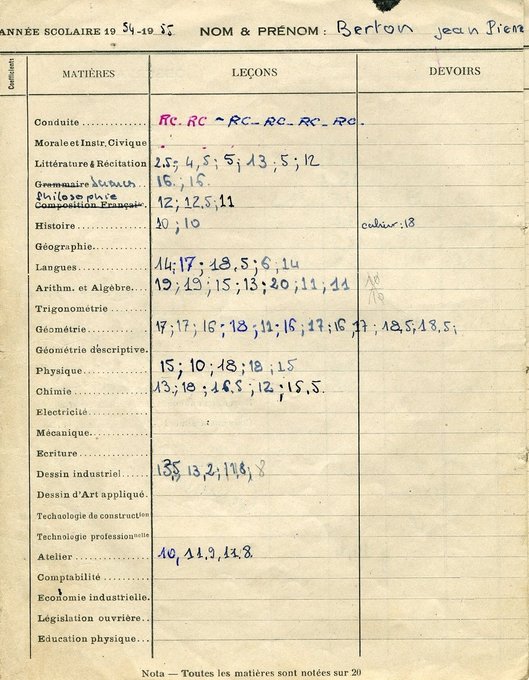 ANNÉE SCOLAIRE 19 54-19 55 NOM & PRÉNOM : Berton jean Pierre
Coefficients MATIÈRES LEÇONS DEVOIRS
Conduite RC. RC - RC - RC - RC - RC.
Morale et Instr. Civique
Littérature & Récitation 2.5; 4,5; 5; 13; 5; 12
Grammaire Sciences 16; 16.
Philosophie
Composition Française 12; 12,5; 11
Histoire 10; 10 cahier: 18
Géographie
Langues 14; 17; 18,5; 6; 14
Arithm. et Algèbre 19; 19; 15; 13; 20; 11; 11 10
10
Trigonométrie
Géométrie 17; 17; 16; 18; 11; 16; 17; 16 17; 18,5; 18,5;
Géométrie descriptive.
Physique 15; 10; 18; 18; 15
Chimie 13; 18; 16.5; 12; 15,5.
Electricité
Mécanique
Ecriture
Dessin industriel 13,5, 13,2; 11,8; 8
Dessin d'Art appliqué.
Technologie de construction
Technologie professionnelle
Atelier 10, 11.9, 11.8
Comptabilité
Economie industrielle.
Législation ouvrière
Education physique
Nota — Toutes les matières sont notées sur 20